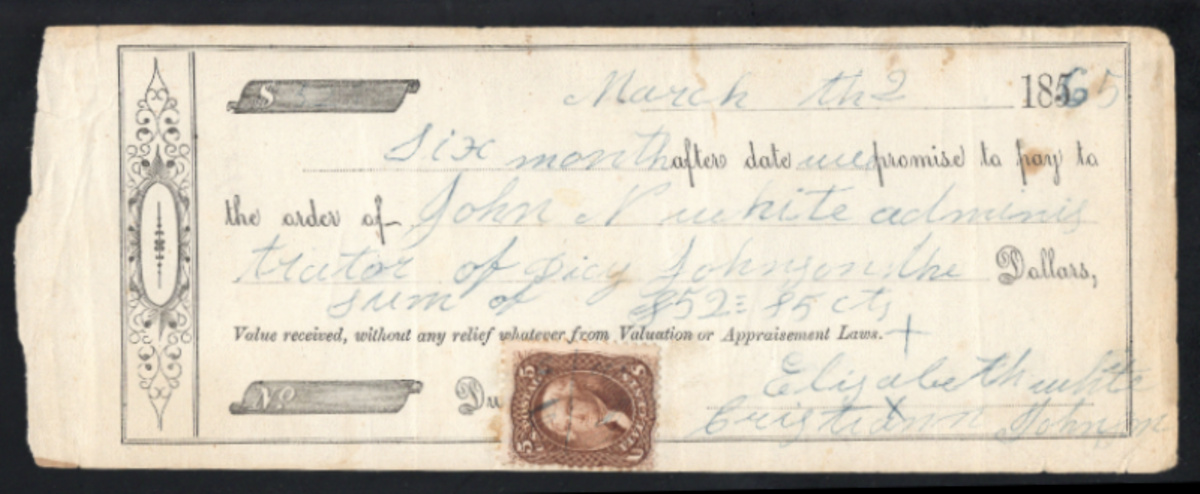 $ March th 2 1865
six month after date we promise to pay to
the order of John N white adminis
trator of Dicy Johnson the Dollars,
sum of $52= 85 cts
Value received, without any relief whatever from Valuation or Appraisement Laws. +
Elizabeth white
No. Du
5 5 Cristiann Johnson